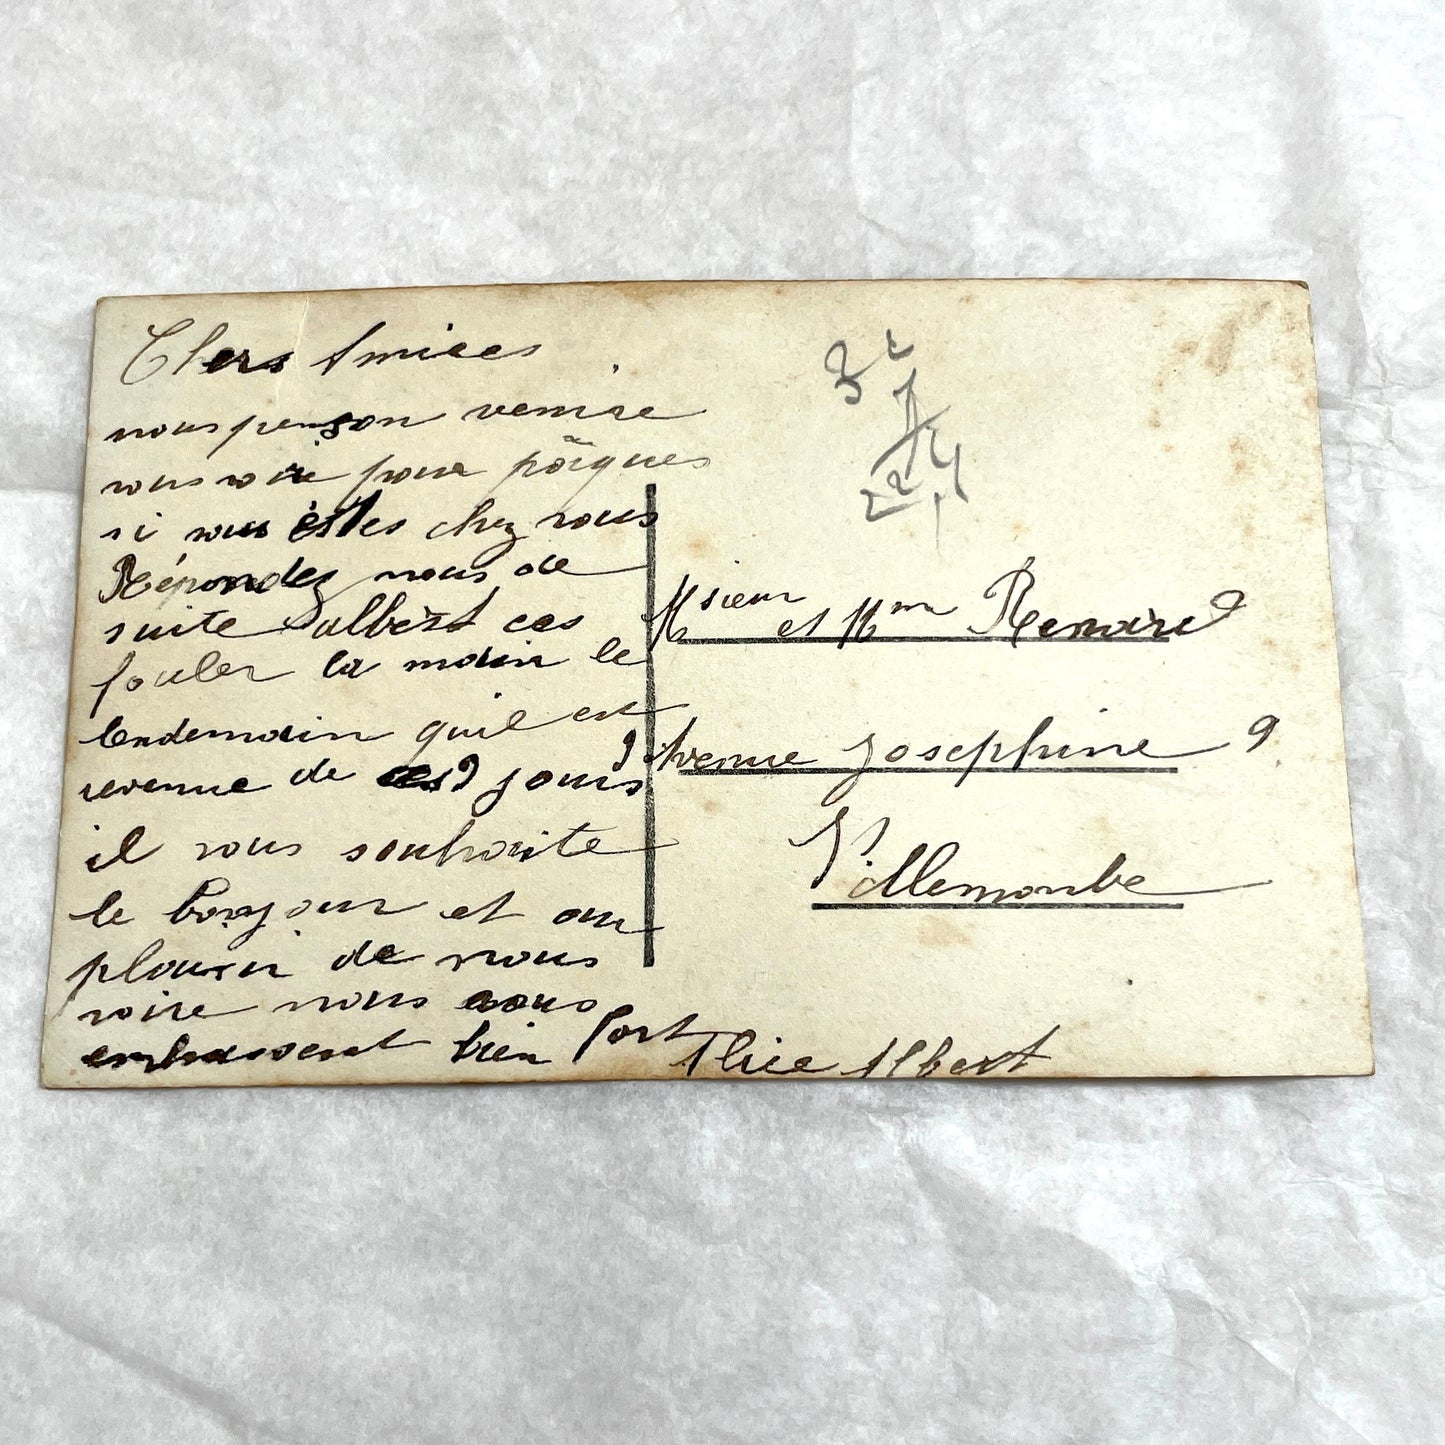 Chers Amiees
nous penson venire
vous voire pour pâques
si vous êstes chez vous
Répondez nous de
suite albert ces
fouler la main le
lendemain quil est
revenue de ces 9 jours
il vous souhaite
le bonjour et au
plaisir de vous
voire nous vous
embrassent bien fort
Alice Albert
Msieur et Mme Renard
9 Avenue Josephine 9
Villemonble